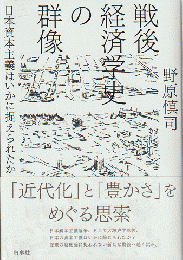 戦後
経済学史
の
群像
日本資本主義はいかに捉えられたか
野原慎司
「近代化」と「豊かさ」を
めぐる思索
白水社